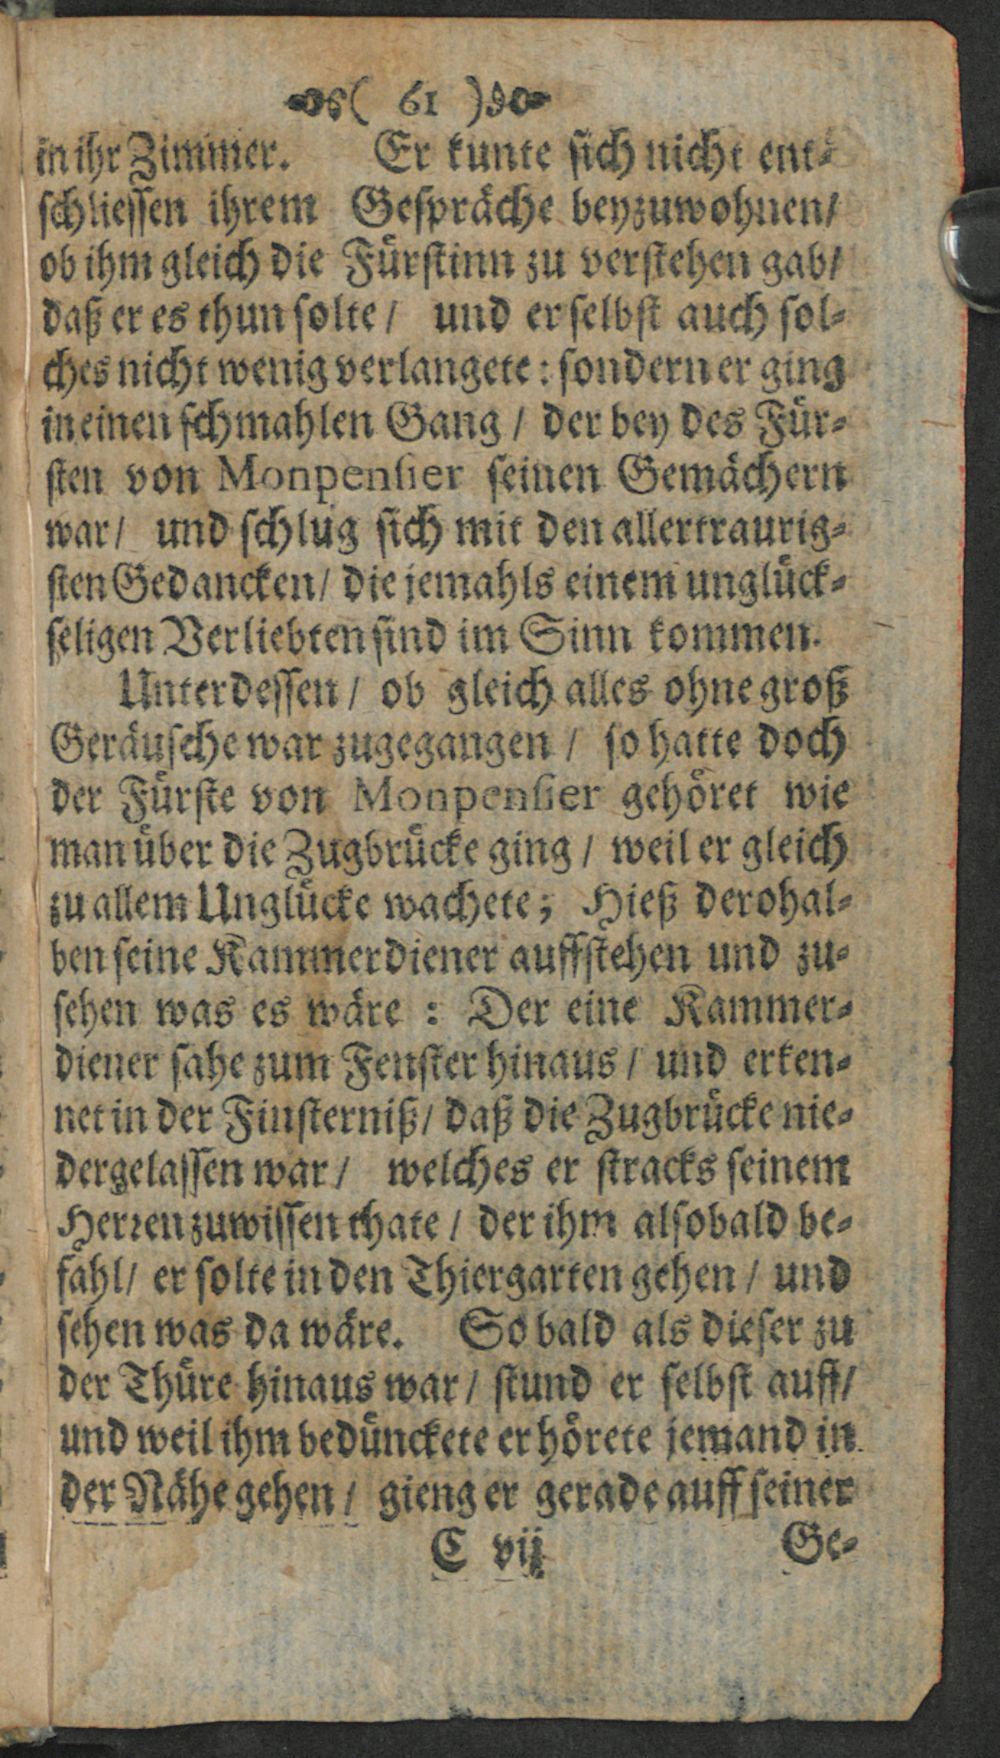 ( 61 )
in ihr Zimmer. Er kunte sich nicht ent-
schliessen ihrem Gespräche beyzuwohnen/
ob ihm gleich die Fürstinn zu verstehen gab/
daß er es thun solte / und er selbst auch sol-
ches nicht wenig verlangete: sondern er ging
in einen schmahlen Gang / der bey des Für-
sten von Monpensier seinen Gemächern
war / und schlug sich mit den allertraurig-
sten Gedancken / die jemahls einem unglück-
seligen Verliebten sind im Sinn kommen.
Unterdessen / ob gleich alles ohne groß
Geräusche war zugegangen / so hatte doch
der Fürste von Monpensier gehöret wie
man über die Zugbrücke ging / weil er gleich
zu allem Unglücke wachete; Hieß derohal-
ben seine Kammerdiener auffstehen und zu-
sehen was es wäre : Der eine Kammer-
diener sahe zum Fenster hinaus / und erken-
net in der Finsterniß / daß die Zugbrücke nie-
dergelassen war / welches er stracks seinem
Herren zuwissen thate / der ihm alsobald be-
fahl / er solte in den Thiergarten gehen / und
sehen was da wäre. So bald als dieser zu
der Thüre hinaus war / stund er selbst auff /
und weil ihm bedünckete er hörete jemand in
der Nähe gehen / gieng er gerade auff seiner
C vij Ge-